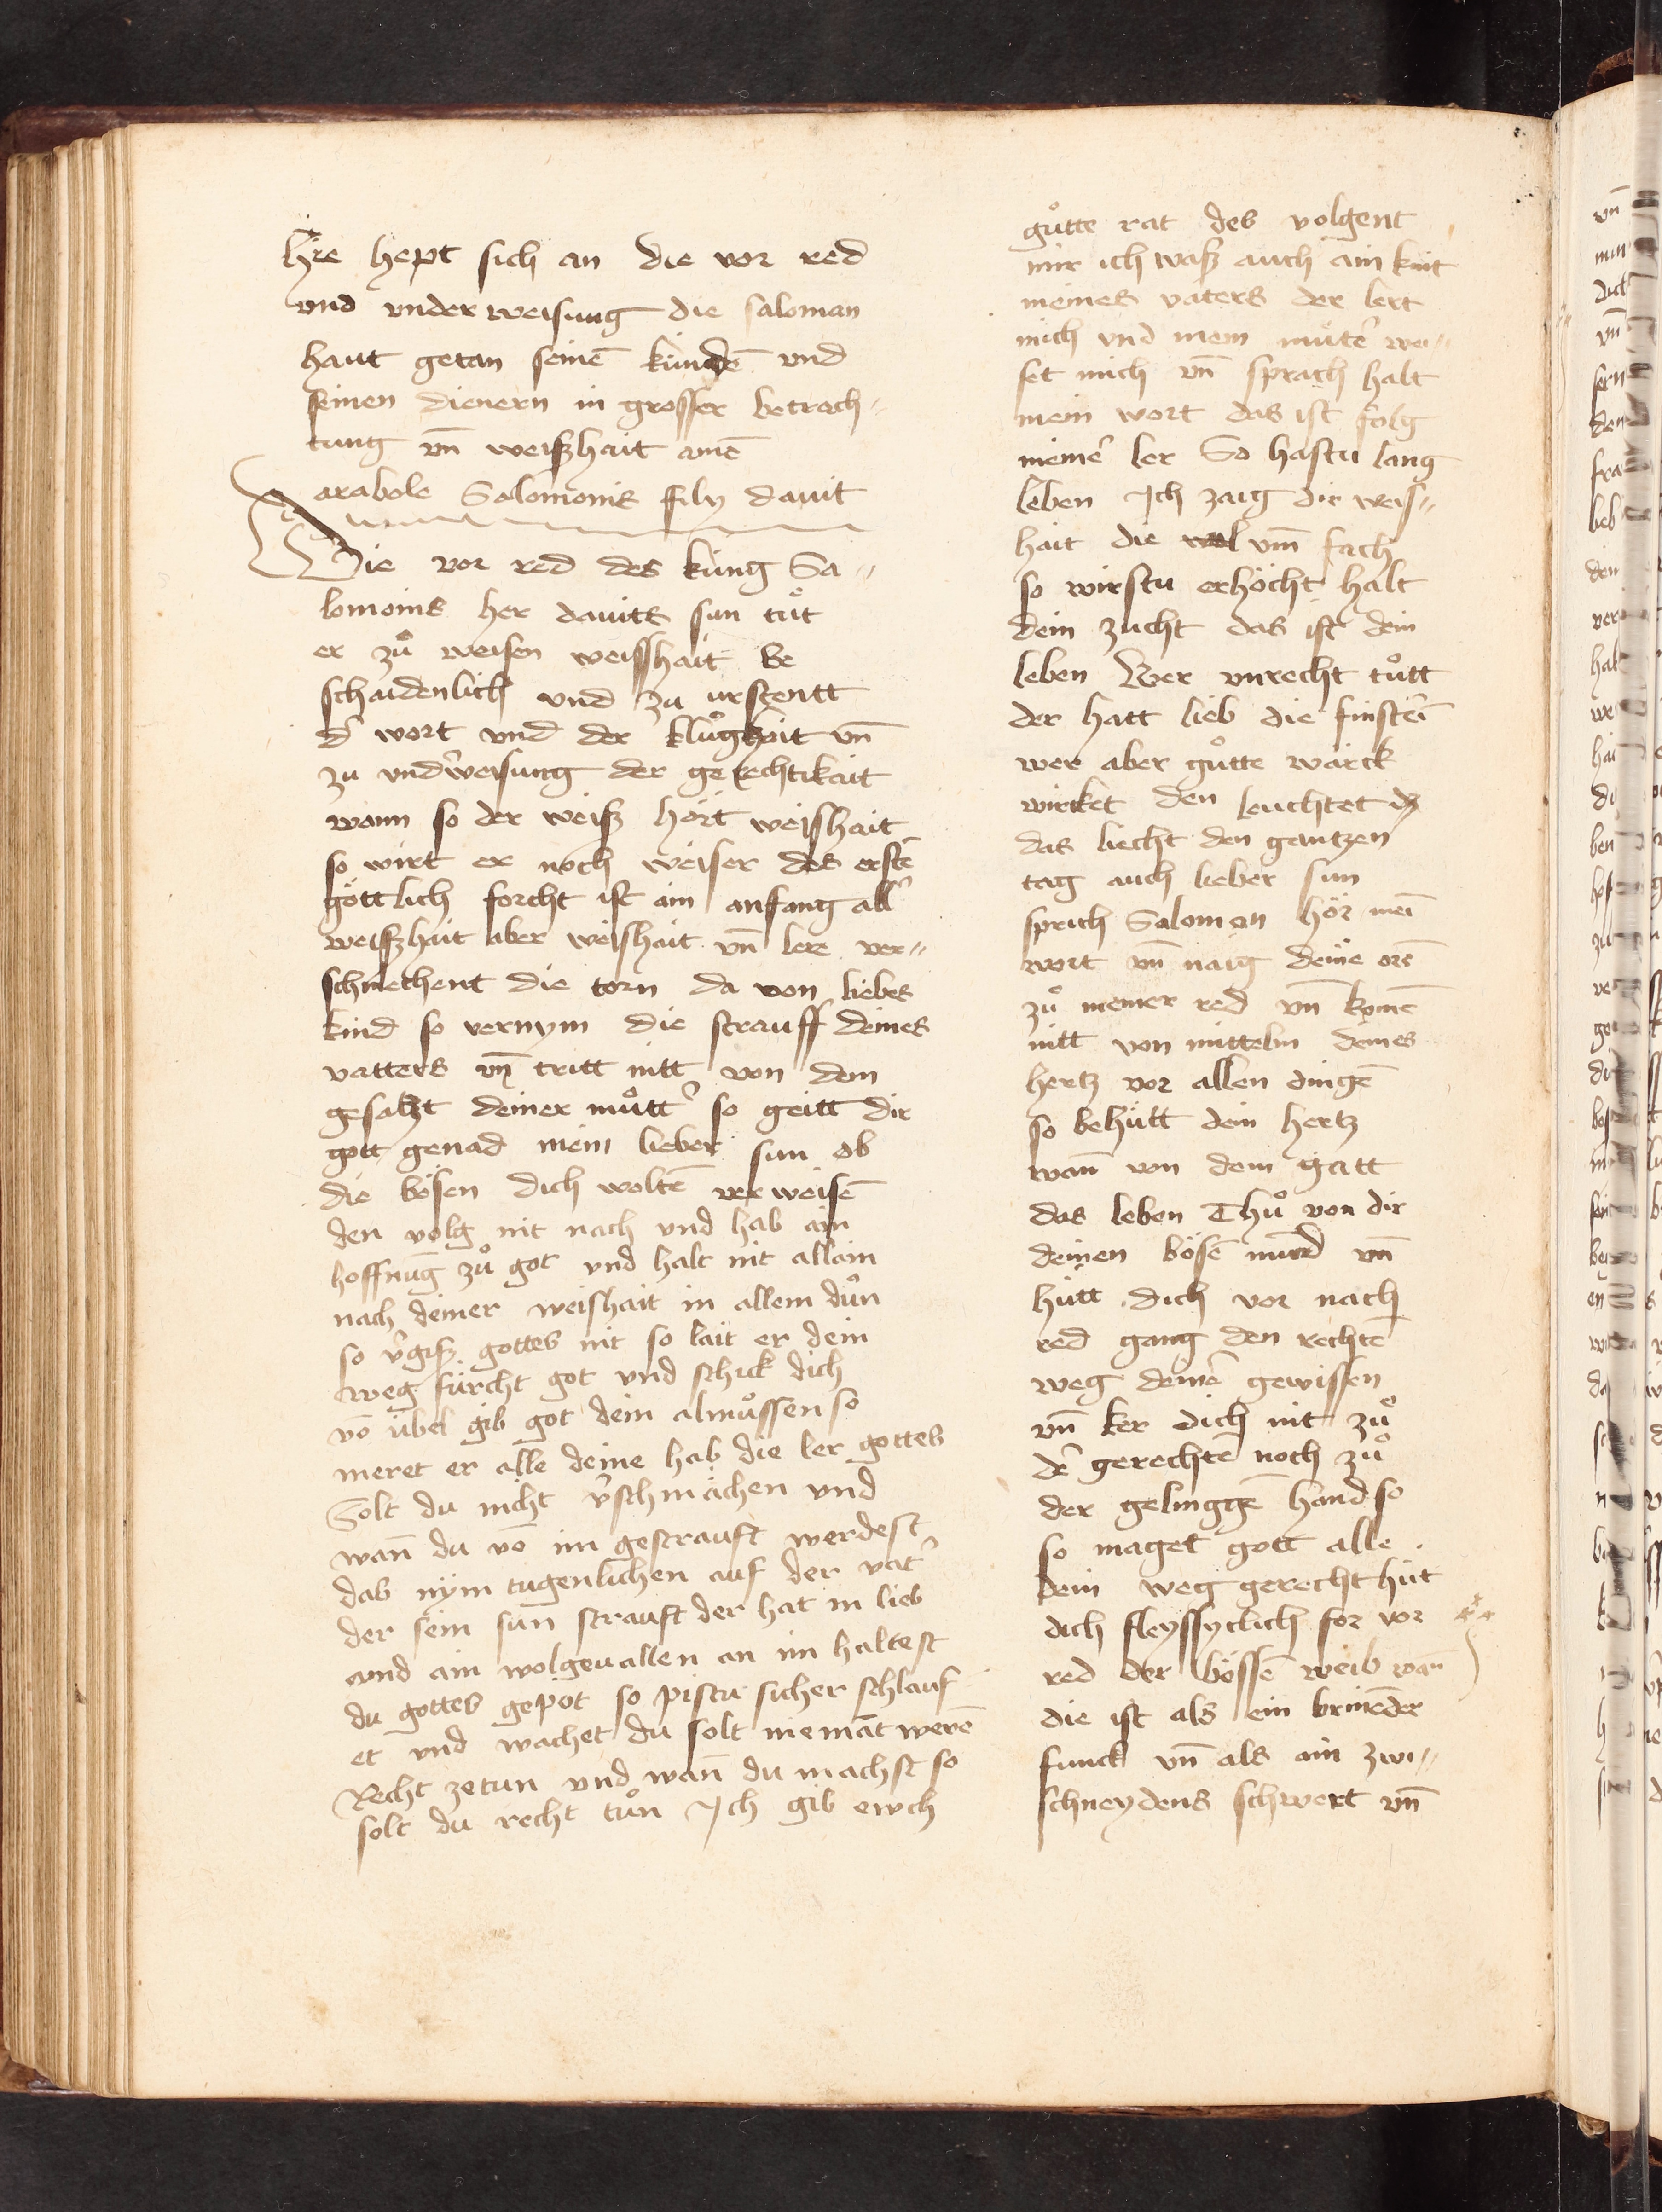 Hie hept sich an die vor red
vnd vnder weisung die saloman
haut getan seinē kindē vnd
seinen dienern in grosser betrach„
tung vn̄ weiszhait amē
Parabole Salomonis fily dauit
Die vor red des küng Sa„
lomonis her dauits sun tuͦt
er zuͦ weisen weisshait be
schaidenlich vnd zu urstentt
d' wort vnd der kluͦghait vn̄
zu vnd'weisung der gerechtikait
wann so der weisz hört weishait
so wirt er noch weiser des erstē
göttlich forcht ist ain anfang all'
weiszhait aber weishait vn̄ lere ver„
schmechent die torn da von liebes
kind so vernym die strauff deines
vatters vn̄ tritt nitt von dem
gesatzt deiner muͦtt' so geitt dir
gott genad mein lieber sun ob
die bösen dich woltē verweisē
den volg nit nach vnd hab ain
hoffnūg zuͦ got vnd halt nit allain
nach deiner weishait in allem duͦn
so v'gisz gottes nit so lait er dein
weg fürcht got vnd schick dich
vō übel gib got dein almuͦssen so
meret er alle deine hab die ler gottes
Solt du nicht v'schmächen vnd
wan̄ du vō im gestrauft werdest
das nym tugenlichen auf der vat'
der sein sun strauft der hat in lieb
vnd ain wolgeuallen an im haltest
du gottes gepot so pistu sicher schlauf
et vnd wachet du solt niemāt werē
Recht ze tun vnd wan̄ du machst so
solt du recht tuͦn Ich gib ewch
guͦtte rat des volgent
mir ich wasz auch ain kint
meines vaters der lert
mich vnd mein muͦte' wei„
set mich vn̄ sprach halt
mein wort das ist folg
meine' ler So hastu lang
leben Ich zaig dir weis„
hait die vm̄ fach
so wirstu erhöcht halt
dein zucht das ist dein
leben Wer vnrecht tuͦtt
der hatt lieb die finsterī
wer aber guͦtte wärck
wircket den leuchtet
das liecht den gantzen
tag auch lieber sun
sprich Salomon hör meī
wort vn̄ naig deine orē
zuͦ meiner red vn̄ komē
nitt von mitteln deines
hertz vor allen dingē
so behütt dein hertz
wan̄ von dem gatt
das leben Thuͦ von dir
deinen bösē mund vn̄
hütt dich vor nach
red gang den rechtē
weg deine' gewissen
vn̄ ker dich nit zuͦ
de' gerechtē noch zuͦ
der gelinggē hand so
so maget gott alle
dein weg gerecht hüt
dich fleyssyclich for vor
red der bössē weib wan̄
die ist als ein brinēder
funck vn̄ als ain zwi„
schneydens schwert vn̄